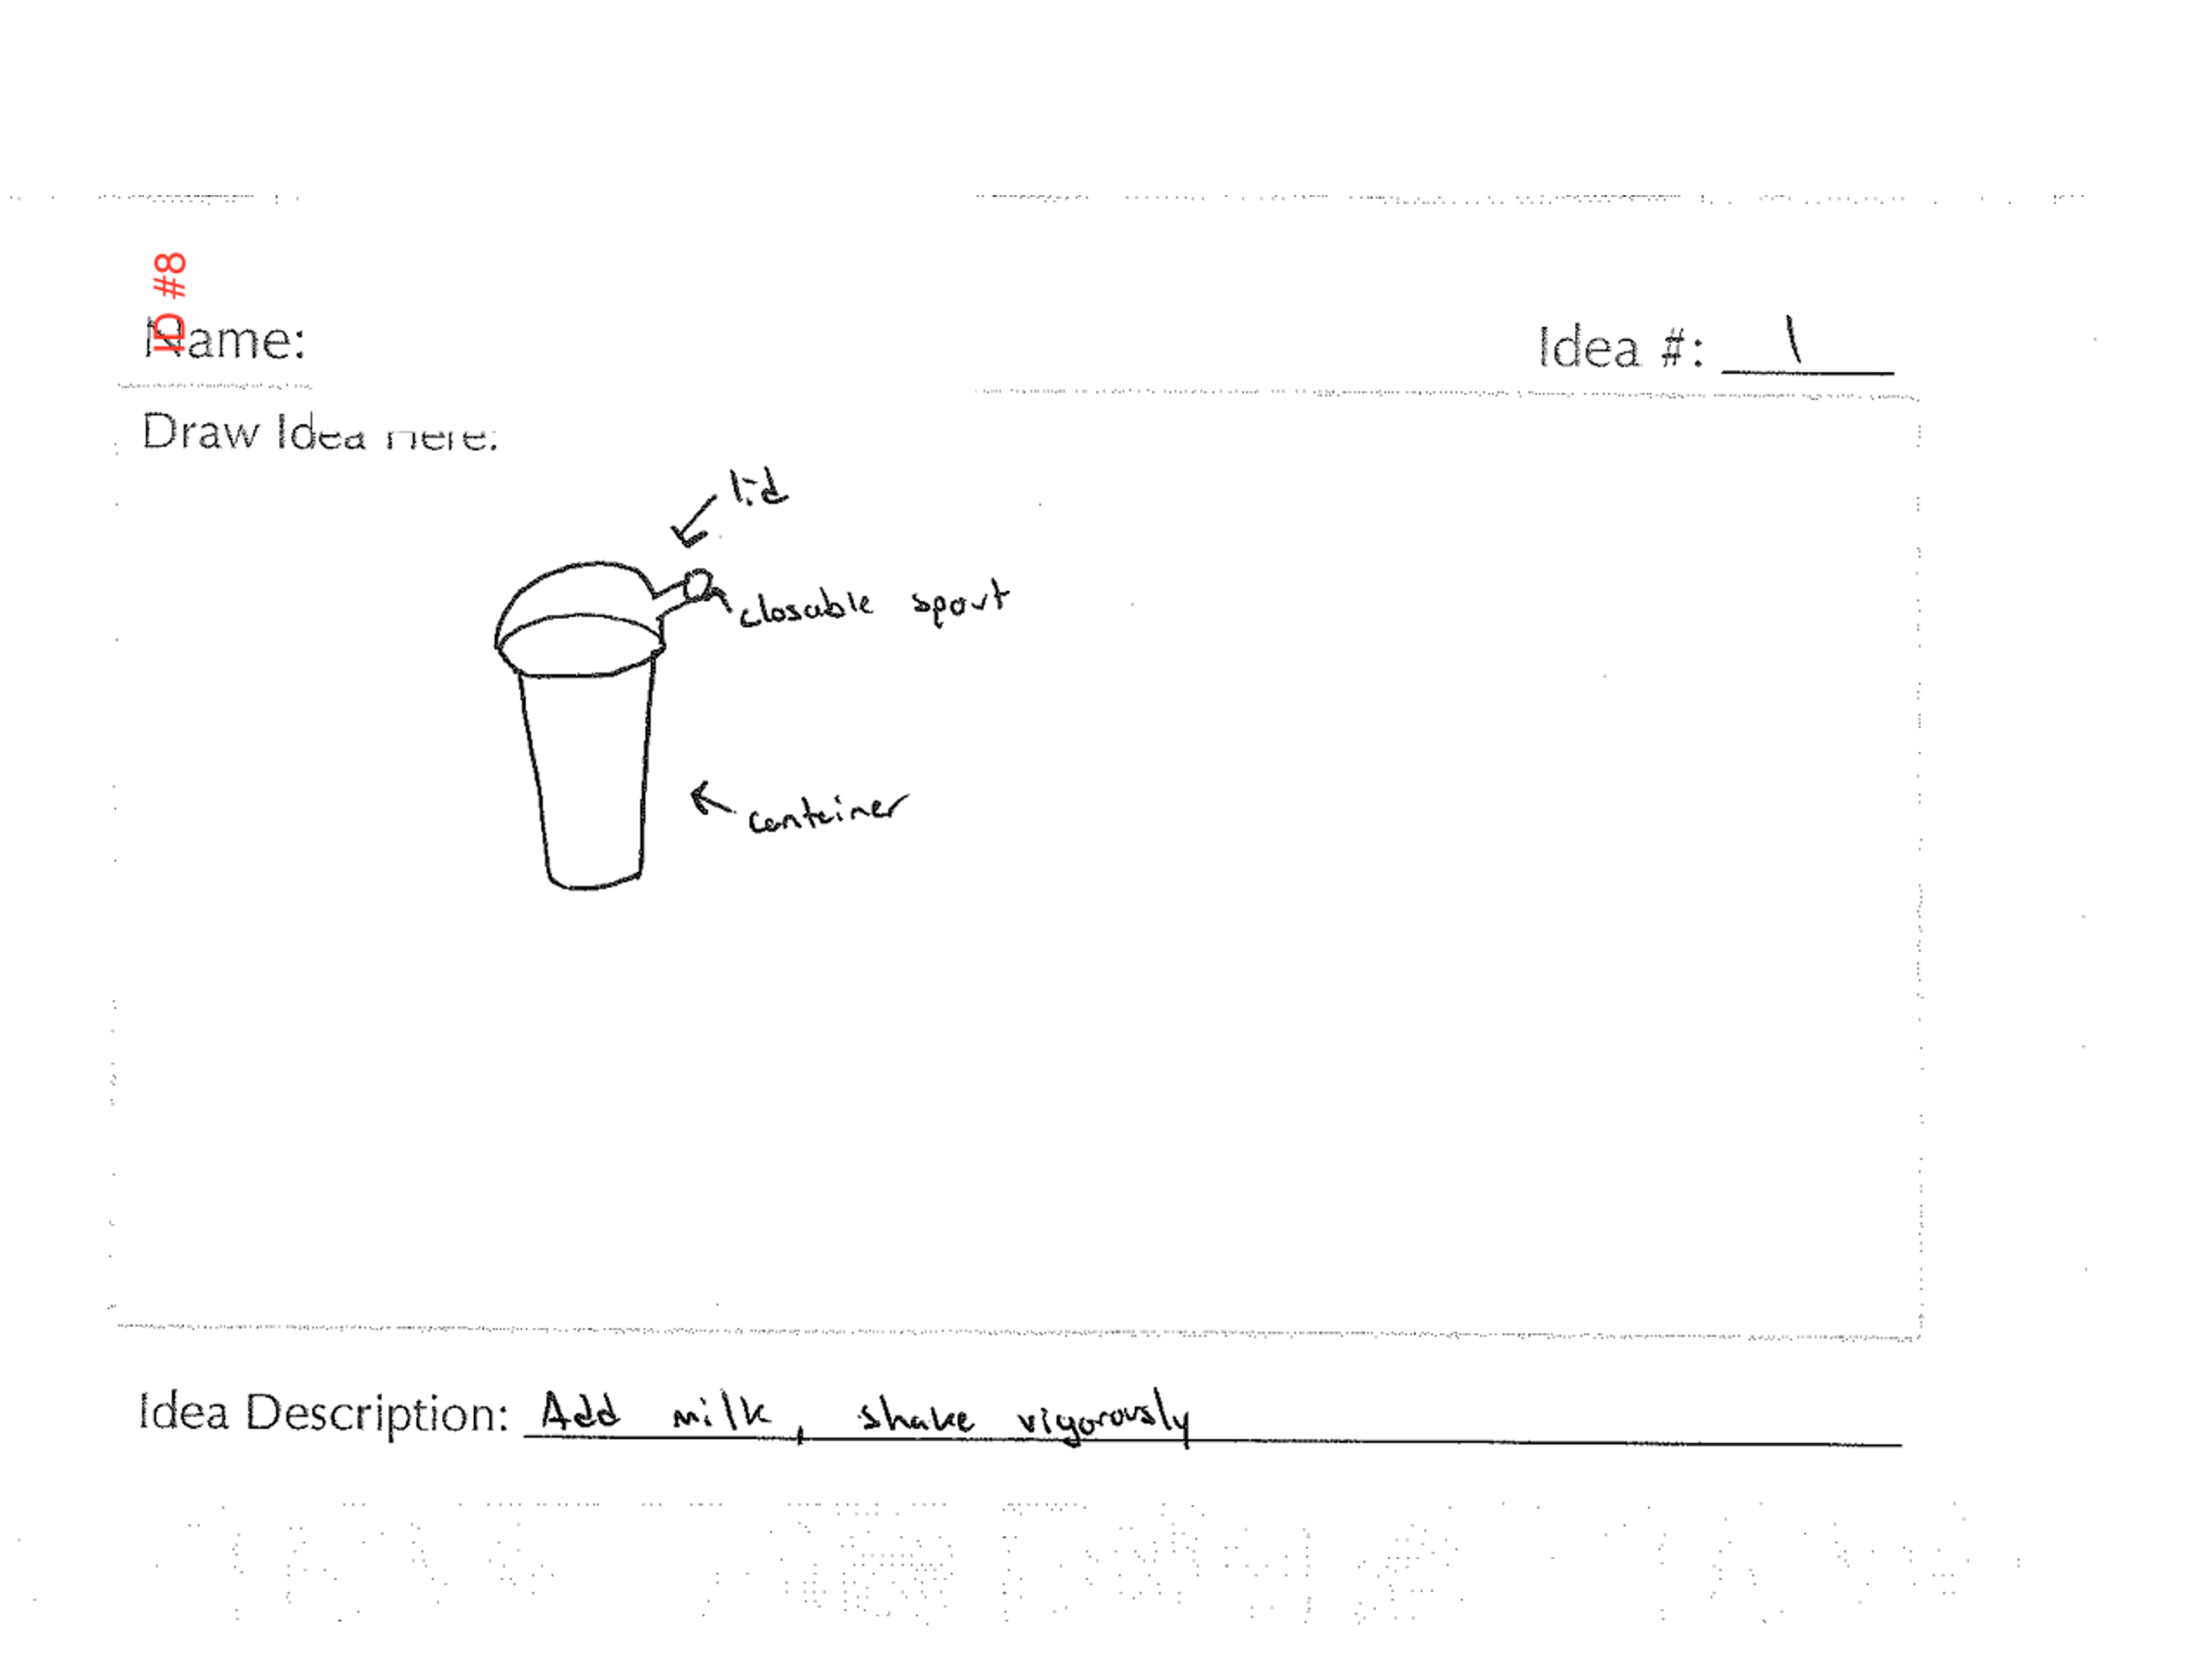 ID #8
Name:
Idea #: 1
Draw Idea Here:
lid
closable spout
container
Idea Description: Add milk, shake vigorously